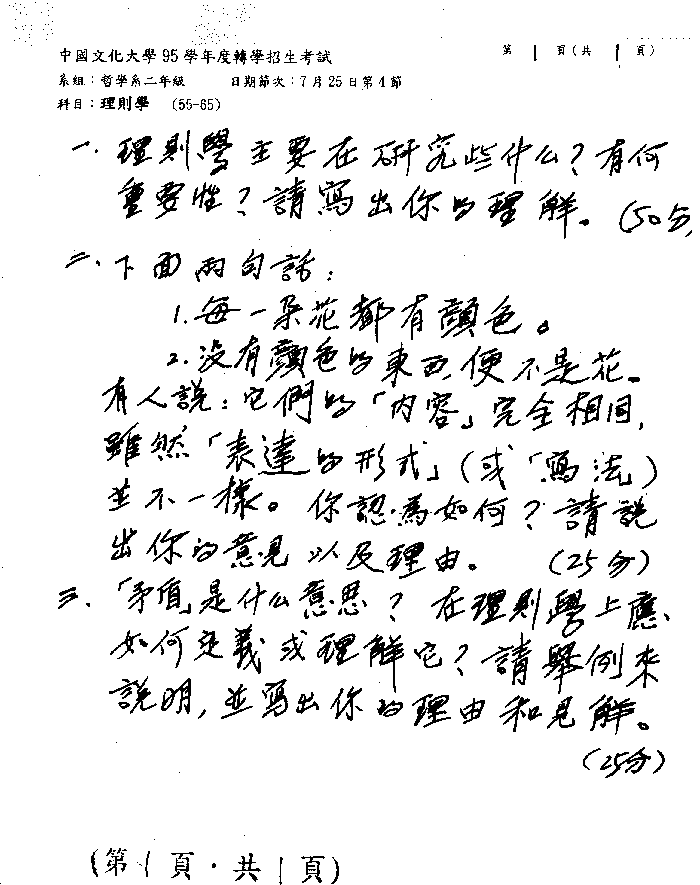 中國文化大學95學年度轉學招生考試　第1頁(共1頁)
系組：哲學系二年級　日期節次：7月25日第4節
科目：理則學 (55-65)
一、理則學主要在研究些什么？有何
重要性？請寫出你的理解。(50分)
二、下面兩句話：
1.每一朵花都有顏色。
2.没有顏色的東西，便不是花。
有人說：它們的「内容」完全相同，
雖然「表達的形式」(或「寫法)
並不一樣。你認為如何？請說
出你的意見以及理由。(25分)
三、「矛盾」是什么意思？在理則學上應
如何定義或理解它？請舉例來
說明，並寫出你的理由和見解。
(25分)
(第1頁·共1頁)